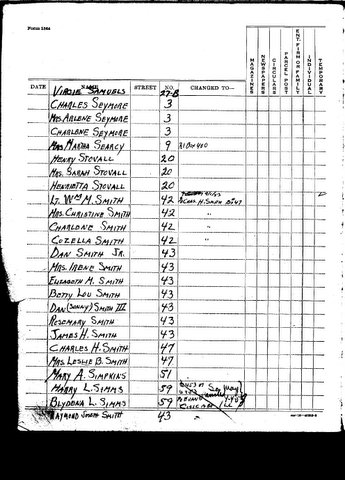 Form 1564
DATE NAME STREET NO. CHANGED TO— MAGAZINES NEWSPAPERS CIRCULARS PARCEL POST ENT. FIRM OR FAMILY INDIVIDUAL TEMPORARY
VIRGIE SAMUELS 27-B
CHARLES SEYMORE 3
MRS ARLENE SEYMORE 3
CHARLENE SEYMORE 3
MRS MARTHA SEARCY 9 R1 Box 400
HENRY STOVALL 20
MRS. SARAH STOVALL 20
HENRIETTA STOVALL 20
LT. WM M. SMITH 42
MRS. CHRISTINE SMITH 42 "
CHARLENE SMITH 42 "
COZELLA SMITH 42 "
DAN SMITH JR. 43
MRS. IRENE SMITH 43
ELIZABETH M. SMITH 43
BETTY LOU SMITH 43
DAN (SONNY) SMITH III 43
ROSEMARY SMITH 43
JAMES H. SMITH 43
CHARLES H. SMITH 47
MRS. LESLIE B. SMITH 47
MARY A. SIMPKINS 51
HARRY L. SIMMS 59
BLYDENA L. SIMMS 59 CHICAGO ILL
RAYMOND JOSEPH SMITH 43